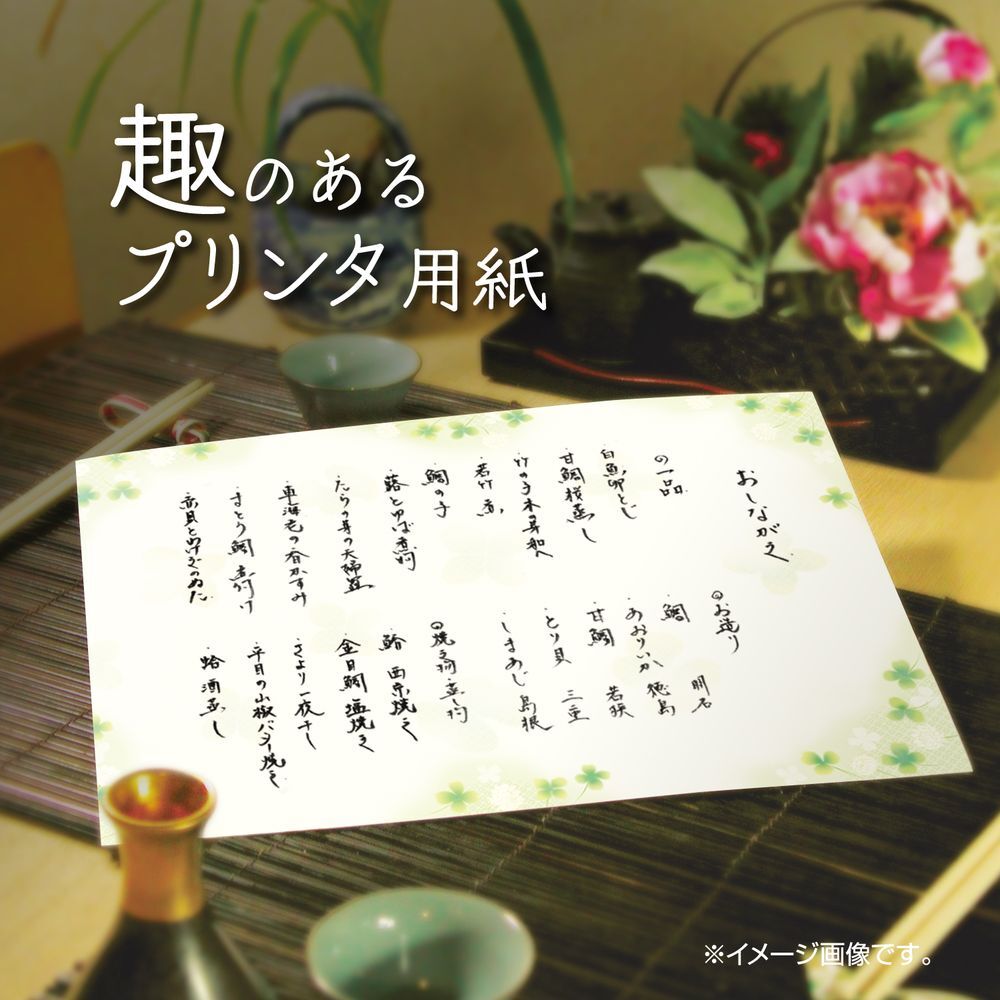 趣のある
プリンタ用紙
おしながき
の一品
・白魚卵とじ
・甘鯛桜蒸し
・竹の子木の芽和へ
・若竹煮
・鯛の子
・蕗とゆば煮物
・たらの芽の天婦羅
・車海老の香かすみ
・まとう鯛煮付け
・赤貝とわけぎのぬた
◎お造り
・鯛 明石
・あおりいか 徳島
・甘鯛 若狭
・とり貝 三重
・しまあじ 島根
◎焼き物・蒸し物
・鰆 西京焼き
・金目鯛 塩焼き
・さより一夜干し
・平目の山椒バター焼き
・蛤酒蒸し
※イメージ画像です。